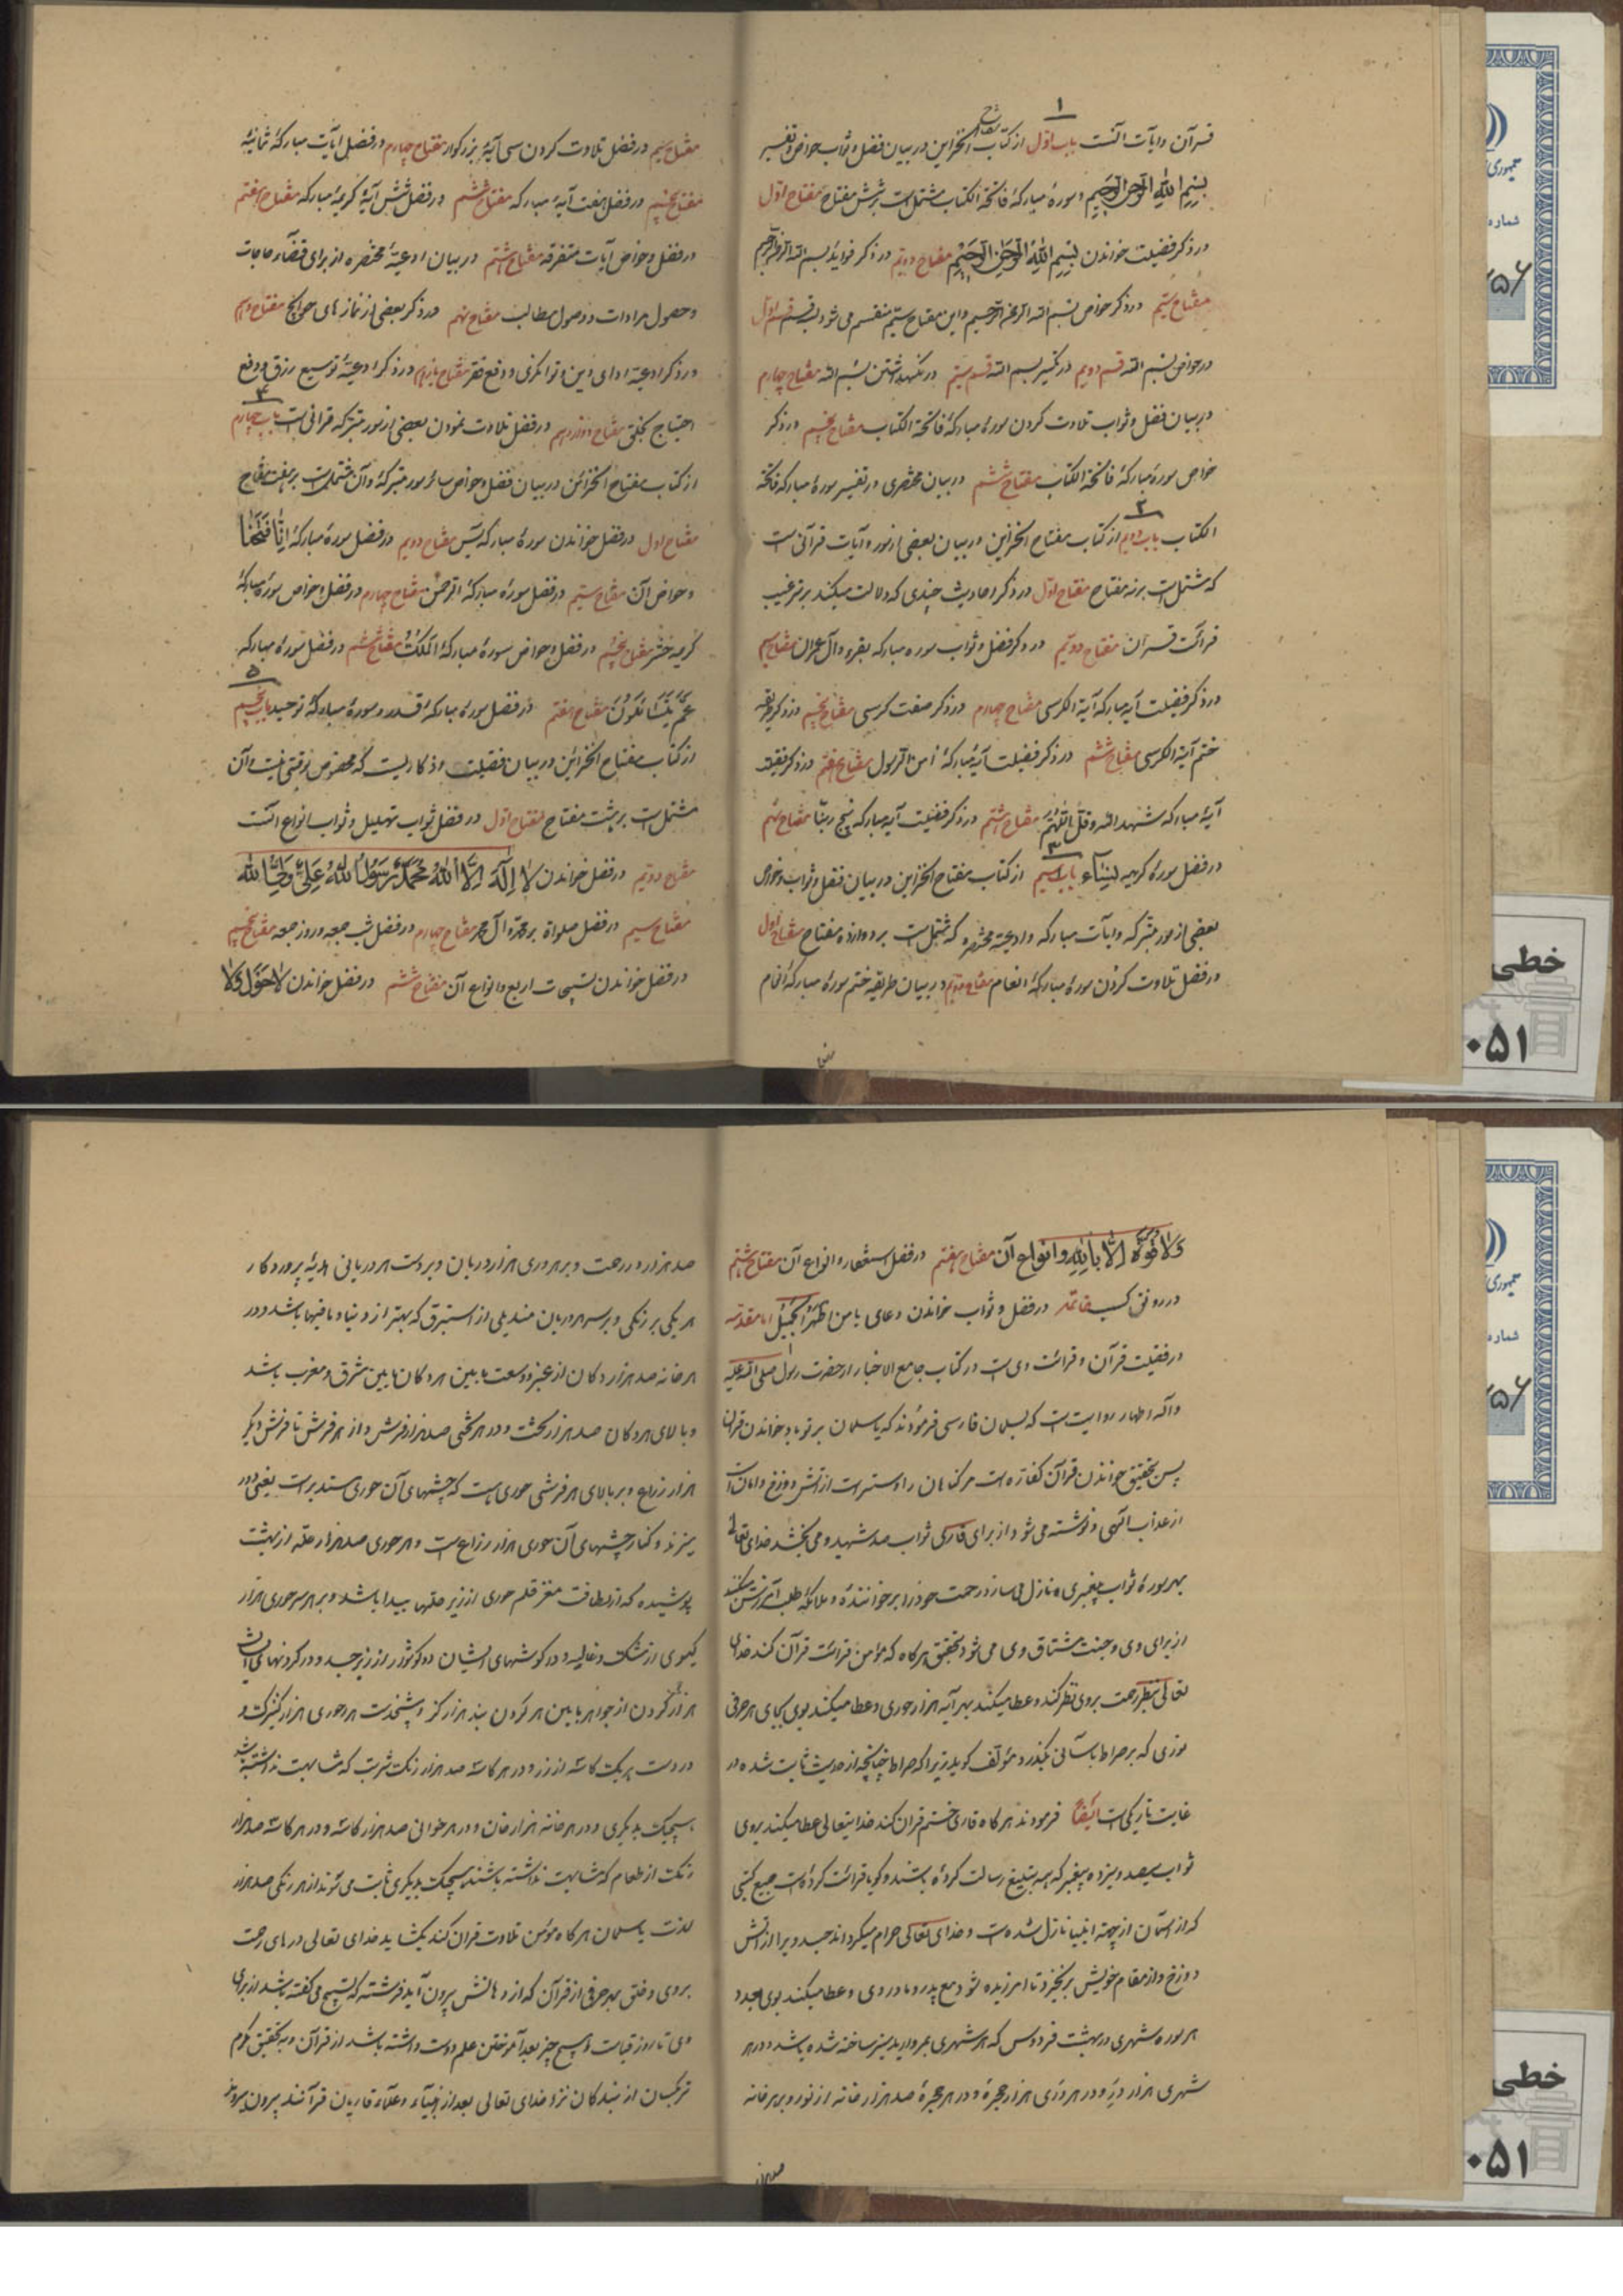 ۱
قرآن و آیات آنست باب اول از کتاب مفتاح الخزاین در بیان فضل و ثواب و خواص و تفسیر
بسم الله الرحمن الرحیم و سورهٔ مبارکهٔ فاتحة الکتاب مشتمل است بر شش مفتاح مفتاح اول
در ذکر فضیلت خواندن بسم الله الرحمن الرحیم مفتاح دویم در ذکر فواید بسم الله الرحمن الرحیم
مفتاح سیم در ذکر خواص بسم الله الرحمن الرحیم و این مفتاح سیم منقسم می شود بسه قسم قسم اول
در خواص بسم الله قسم دویم در تکسیر بسم الله قسم سیم در نگهداشتن بسم الله مفتاح چهارم
در بیان فضل و ثواب تلاوت کردن سورهٔ مبارکهٔ فاتحة الکتاب مفتاح پنجم در ذکر
خواص سورهٔ مبارکهٔ فاتحة الکتاب مفتاح ششم در بیان مختصری در تفسیر سورهٔ مبارکه فاتحة
۲
الکتاب باب دویم از کتاب مفتاح الخزاین در بیان بعضی از سور و آیات قرآنی است
که مشتمل است بر نه مفتاح مفتاح اول در ذکر احادیث چندی که دلالت میکند بر ترغیب
قرائت قرآن مفتاح دویم در ذکر فضل و ثواب سوره مبارکه بقره و آل عمران مفتاح سیم
در ذکر فضیلت آیه مبارکه آیة الکرسی مفتاح چهارم در ذکر صفت کرسی مفتاح پنجم در ذکر طریقه
ختم آیة الکرسی مفتاح ششم در ذکر فضیلت آیهٔ مبارکهٔ امن الرسول مفتاح هفتم در ذکر فضیلت
آیهٔ مبارکه شهد الله و قل اللهم مفتاح هشتم در ذکر فضیلت آیه مبارکه پنج ربنا مفتاح نهم
۳
در فضل سورهٔ کریمه نساء باب سیم از کتاب مفتاح الخزاین در بیان فضل و ثواب و خواص
بعضی از سور متبرکه و آیات مبارکه و ادعیهٔ مختصره که مشتمل است بر دوازده مفتاح مفتاح اول
در فضل تلاوت کردن سورهٔ مبارکهٔ انعام مفتاح دویم در بیان طریقه ختم سورهٔ مبارکهٔ انعام
مفتاح سیم در فضل تلاوت کردن سی آیهٔ بزرگوار مفتاح چهارم در فضل آیات مبارکهٔ ثمانیه
مفتاح پنجم در فضل هفت آیهٔ مبارکه مفتاح ششم در فضل شش آیهٔ کریمهٔ مبارکه مفتاح هفتم
در فضل و خواص آیات متفرقه مفتاح هشتم در بیان ادعیهٔ مختصره از برای قضاء حاجات
و حصول مرادات و وصول مطالب مفتاح نهم در ذکر بعضی از نمازهای حوائج مفتاح دهم
در ذکر ادعیهٔ ادای دین و توانگری و دفع فقر مفتاح یازدهم در ذکر ادعیهٔ توسیع رزق و دفع
۴
احتیاج بخلق مفتاح دوازدهم در فضل تلاوت نمودن بعضی از سور متبرکه قرانی است باب چهارم
از کتاب مفتاح الخزائن در بیان فضل و خواص سائر سور متبرکهٔ و آن مشتملست بر هفت مفتاح
مفتاح اول در فضل خواندن سورهٔ مبارکه یس مفتاح دویم در فضل سورهٔ مبارکهٔ انا فتحنا
و خواص آن مفتاح سیم در فضل سورهٔ مبارکهٔ الرحمن مفتاح چهارم در فضل و خواص سورهٔ مبارکهٔ
کریمه حشر مفتاح پنجم در فضل و خواص سورهٔ مبارکهٔ الملک مفتاح ششم در فضل سورهٔ مبارکه
۵
عم یتسائلون مفتاح هفتم در فضل سورهٔ مبارکهٔ قدر و سورهٔ مبارکهٔ توحید باب پنجم
از کتاب مفتاح الخزائن در بیان فضیلت اذکاریست که مخصوص وقتی نیست و آن
مشتمل است بر هشت مفتاح مفتاح اول در فضل ثواب تهلیل و ثواب انواع آنست
مفتاح دویم در فضل خواندن لا اله الا الله محمد رسول الله علی ولی الله
مفتاح سیم در فضل صلواة بر محمد و آل محمد مفتاح چهارم در فضل شب جمعه و روز جمعه مفتاح پنجم
در فضل خواندن تسبیحات اربع و انواع آن مفتاح ششم در فضل خواندن لا حول ولا
ولا قوة الا بالله و انواع آن مفتاح هفتم در فضل استغفار و انواع آن مفتاح هشتم
در رونق کسب خاتمه در فضل و ثواب خواندن دعای یا من اظهر الجمیل اما مقدمه
در فضیلت قرآن و قرائت وی است در کتاب جامع الاخبار از حضرت رسول صلی الله علیه
و آله اطهار روایت است که بسلمان فارسی فرمودند که یا سلمان بر تو باد بخواندن قران
پس بتحقیق خواندن قرآن کفاره است مر گناهان را و ستر است از آتش دوزخ و امان است
از عذاب الهی و نوشته می شود از برای قاری ثواب صد شهید و می بخشد خدای تعالی
بهر سورهٔ ثواب پیغمبری و نازل می سازد رحمت خود را بر خوانندهٔ و ملائکه طلب آمرزش میکنند
از برای وی و جنت مشتاق وی می شود بتحقیق هرگاه که مؤمن قرائت قرآن کند خدای
تعالی بنظر رحمت بروی نظر کند و عطا میکند بهر آیه هزار حوری و عطا میکند بوی بجای هر حرفی
نوری که بر صراط بآسانی بگذرد مؤلف کوید زیرا که صراط چنانچه از حدیث ثابت شده در
غایت تاریکی است ایضا فرمودند هرگاه قاری ختم قران کند خدایتعالی عطا میکند بروی
ثواب سیصد و سیزده پیغمبر که همه تبلیغ رسالت کرده باشند و گویا قرائت کرده است جمیع کتبی
که از آسمان از جهة انبیا نازل شده است و خدای تعالی حرام میگرداند جسد ویرا از آتش
دوزخ و از مقام خویش بر نخیزد تا امرزیده شود مع پدر و مادر وی و عطا میکند بوی بعدد
هر سوره شهری در بهشت فردوس که هر شهری بمروارید سبز ساخته شده باشد و در هر
شهری هزار دیر و در هر دری هزار حجرهٔ و در هر حجرهٔ صد هزار خانه از نور و بر هر خانه
صد هزار در رحمت و بر هر دری هزار دربان و بر دست هر دربانی هدیهٔ پروردکار
هر یکی بر رنگی و بر سر هر دربان مندیلی از استبرق که بهتر از دنیا و مافیها باشد و در
هر خانه صد هزار دکان از عنبر و وسعت مابین هر دکان مابین مشرق و مغرب باشد
و بالای هر دکان صد هزار تخت و در هر تختی صد هزار فرش و از هر فرش تا فرش دیگر
هزار ذراع و بر بالای هر فرشی حوری است که چشمهای آن حوری مستدیر است یعنی دور
میزند و کنار چشمهای آن حوری هزار ذراع است و هر حوری صد هزار حلّه از بهشت
پوشیده که از لطافت مغز قلم حوری از زیر حلها پیدا باشد و بر هر سر حوری هزار
کیسوی از مشک و غالیه و در کوشهای ایشان دو کوشوار از زبرجد و در کردنهای ایشان
هزار کردن از جواهر مابین هر کردن بند هزار کز و پشخدمت هر حوری هزار کنیزک و
در دست هر یک کاسه از زر و در هر کاسه صد هزار رنک شربت که شباهت نداشته باشد
هیچیک بدیگری و در هر خانه هزار خان و در هر خوانی صد هزار کاسه و در هر کاسه صد هزار
رنک از طعام که شباهت نداشته باشند هیچیک بدیگری ثابت می شوند از هر رنگی صد هزار
لذت یا سلمان هرگاه مؤمن تلاوت قران کند بگشاید خدای تعالی درهای رحمت
بروی و خلق بهر حرفی از قرآن که از دهانش بیرون آید فرشته که تسبیح می کفته باشد از برای
وی تا روز قیامت و هیچ چیز بعد آموختن علم دوست داشته باشد از قرآن و به تحقیق مکرم
ترکسان از بندکان نزد خدای تعالی بعد از انبیاء و علماء قاریان قرآنند بیرون میروند
جمهوری
شماره
۲۵۶
خطی
۰۵۱
جمهوری
شماره
۲۵۶
خطی
۰۵۱